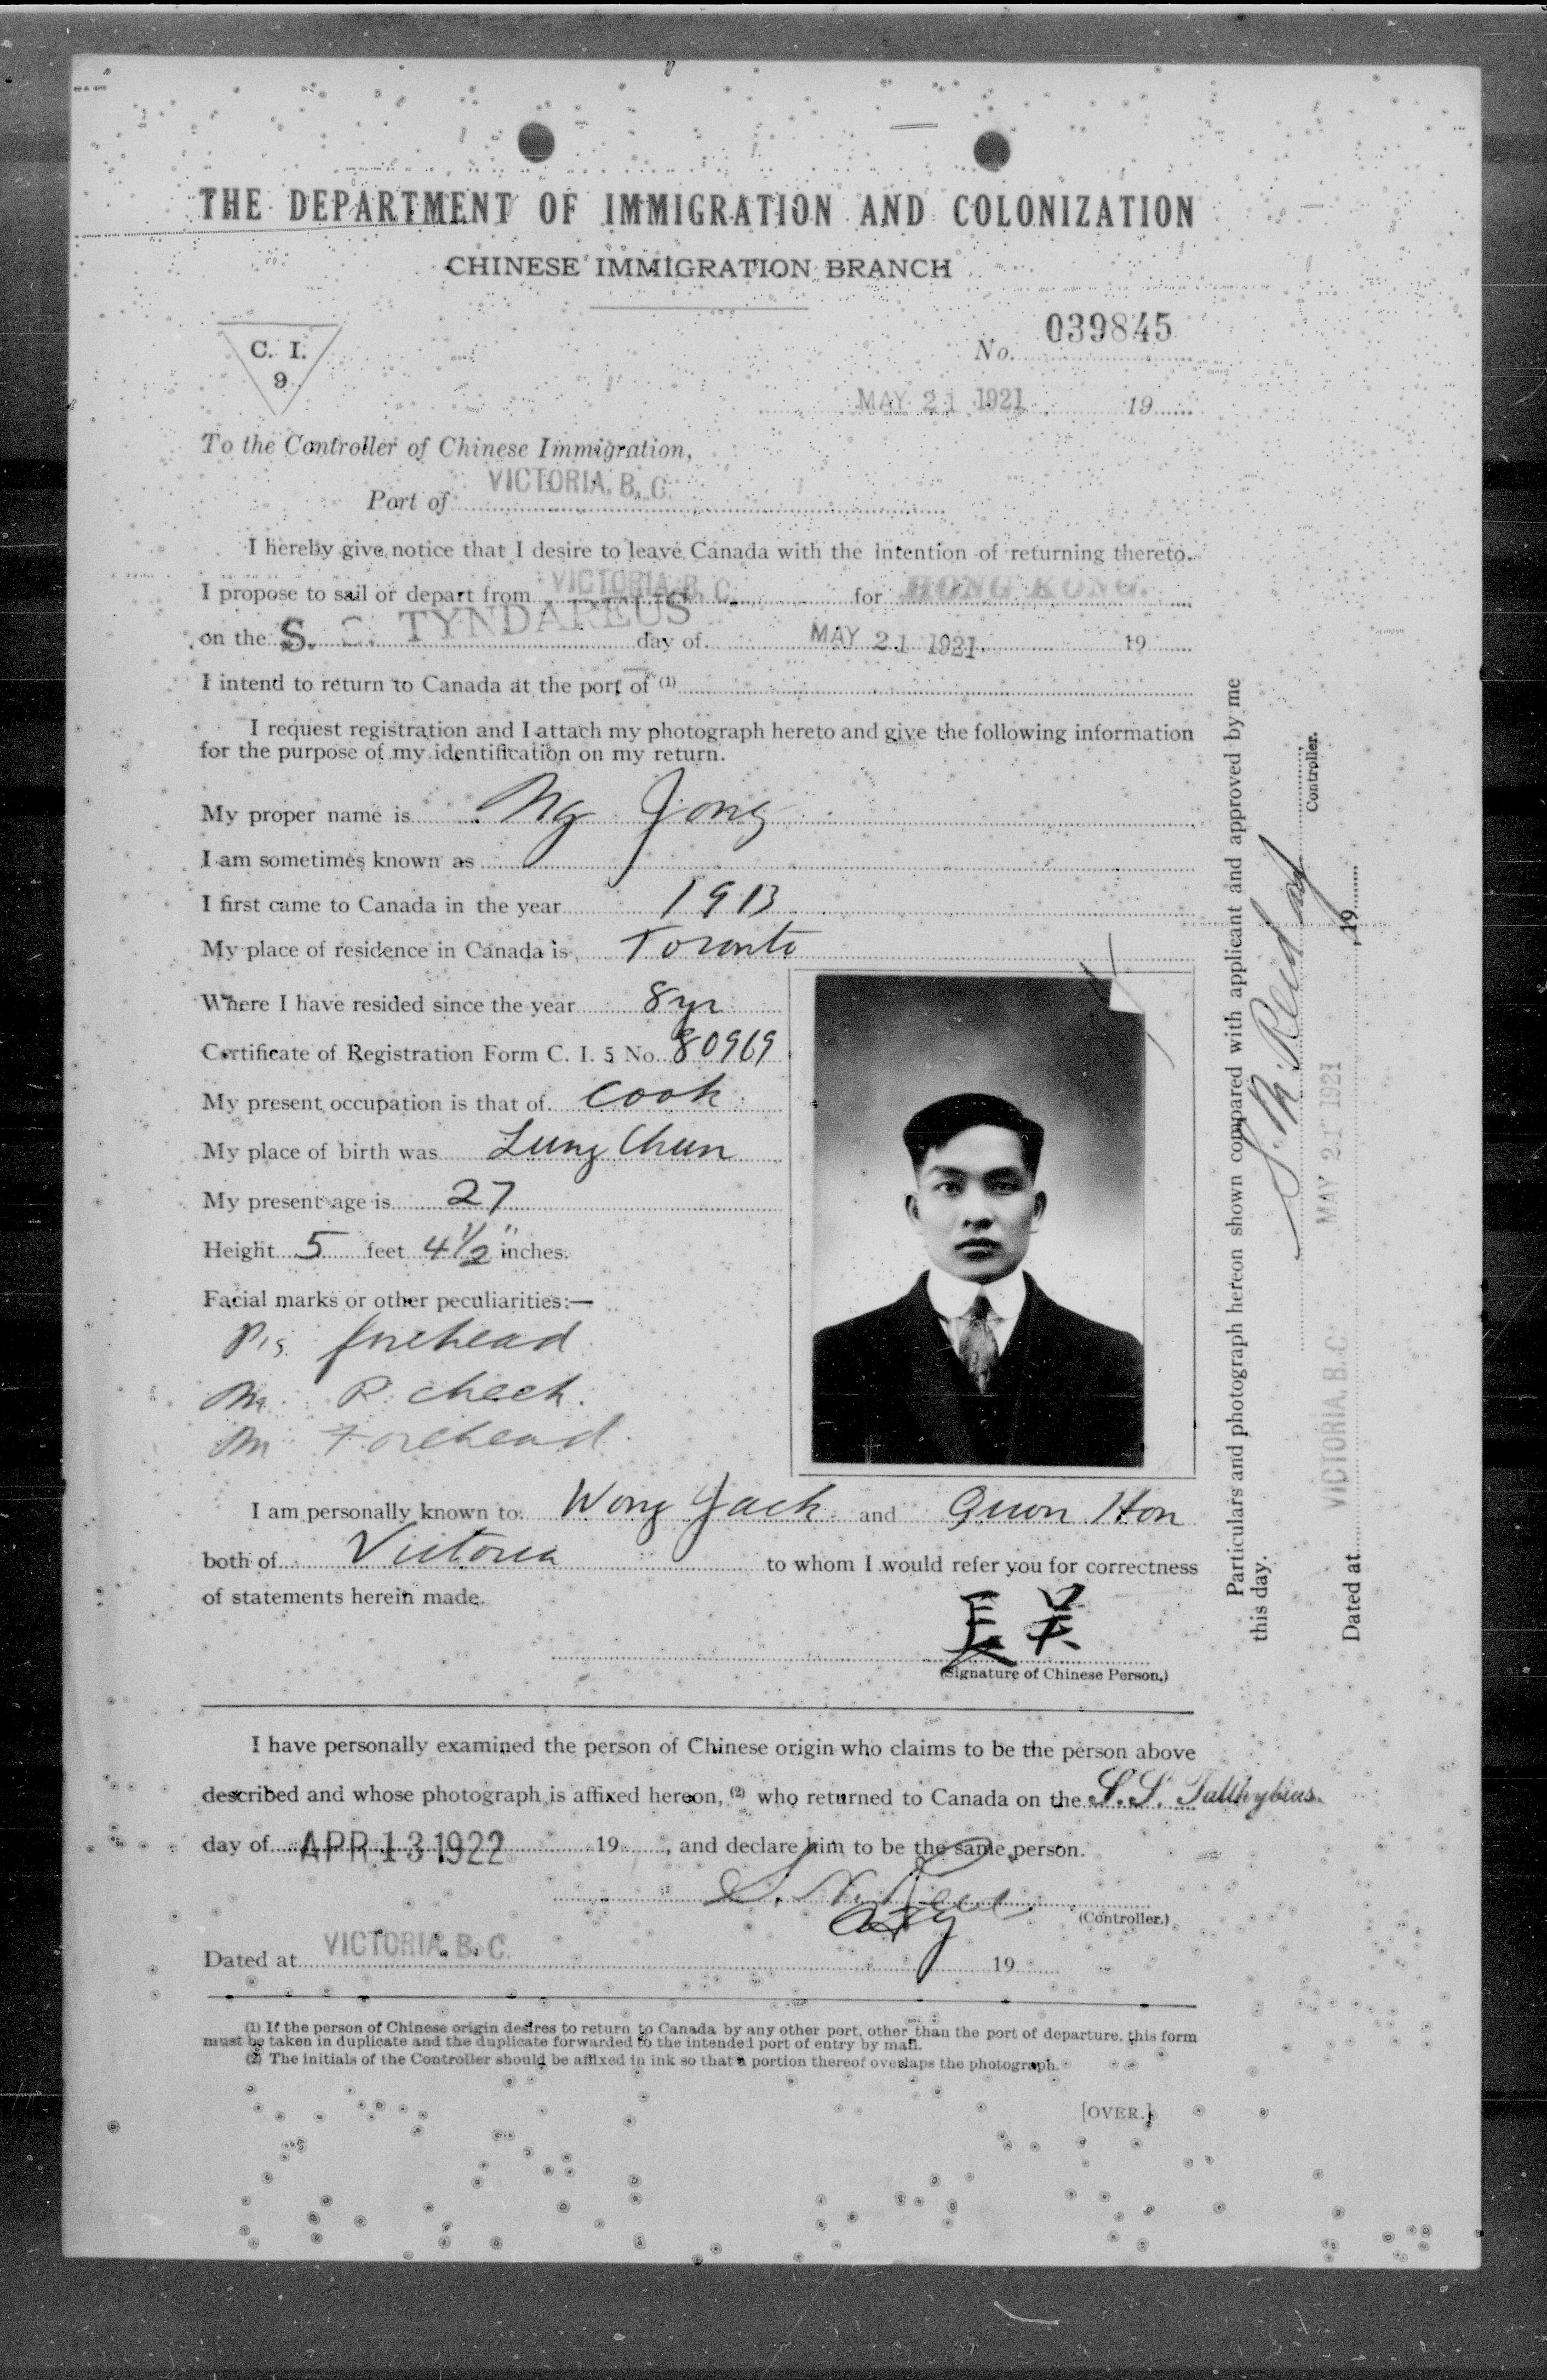 THE DEPARTMENT OF IMMIGRATION AND COLONIZATION
CHINESE IMMIGRATION BRANCH
C. I.
9
No. 039845
MAY 21 1921 19
To the Controller of Chinese Immigration,
Port of VICTORIA, B. C.
I hereby give notice that I desire to leave Canada with the intention of returning thereto.
I propose to sail or depart from VICTORIA, B. C. for HONG KONG.
on the S. S. TYNDAREUS day of MAY 21 1921 19
I intend to return to Canada at the port of (1)
I request registration and I attach my photograph hereto and give the following information
for the purpose of my identification on my return.
My proper name is Ng Jong
I am sometimes known as
I first came to Canada in the year 1913
My place of residence in Canada is Toronto
Where I have resided since the year 8 yr
Certificate of Registration Form C. I. 5 No. 80969
My present occupation is that of Cook
My place of birth was Lung Chun
My present age is 27
Height 5 feet 4 1/2" inches.
Facial marks or other peculiarities:—
forehead
R. cheek.
Forehead
I am personally known to Wong Jack and Quon Hon
both of Victoria to whom I would refer you for correctness
of statements herein made.
長吴
(Signature of Chinese Person.)
I have personally examined the person of Chinese origin who claims to be the person above
described and whose photograph is affixed hereon, (2) who returned to Canada on the S.S. Talthybius
day of APR 13 1922 19 , and declare him to be the same person.
(Controller.)
Dated at VICTORIA, B. C. 19
(1) If the person of Chinese origin desires to return to Canada by any other port, other than the port of departure, this form
must be taken in duplicate and the duplicate forwarded to the intended port of entry by mail.
(2) The initials of the Controller should be affixed in ink so that a portion thereof overlaps the photograph.
[OVER.]
Particulars and photograph hereon shown compared with applicant and approved by me
this day.
Controller.
Dated at VICTORIA, B. C. MAY 21 1921 , 19